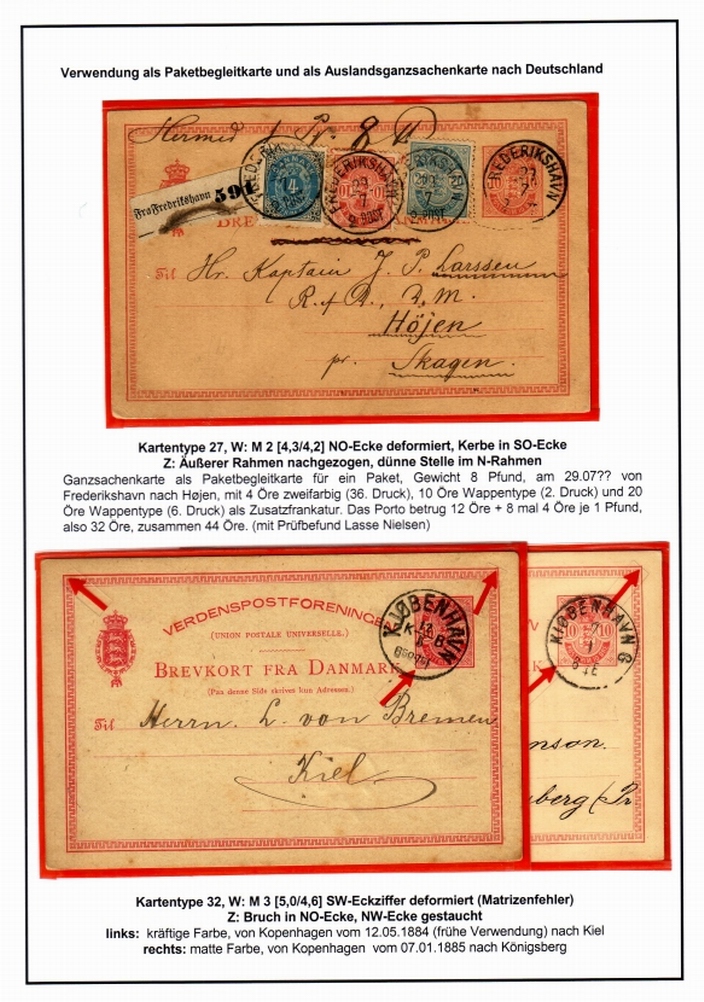 Verwendung als Paketbegleitkarte und als Auslandsganzsachenkarte nach Deutschland
Hermed 1 Pk. 8 #
Fra Fredrikshavn 591
DANMARK 4
FREDERIKSHAVN 29 7 2 POST
10
FREDERIKSHAVN 29 7 2 POST
20
2 POST
10
FREDERIKSHAVN
BRE
Til Hr. Kaptain J. P. Larssen
R. af D., D. M.
Höjen
pr. Skagen.
Kartentype 27, W: M 2 [4,3/4,2] NO-Ecke deformiert, Kerbe in SO-Ecke
Z: Äußerer Rahmen nachgezogen, dünne Stelle im N-Rahmen
Ganzsachenkarte als Paketbegleitkarte für ein Paket, Gewicht 8 Pfund, am 29.07?? von
Frederikshavn nach Højen, mit 4 Öre zweifarbig (36. Druck), 10 Öre Wappentype (2. Druck) und 20
Öre Wappentype (6. Druck) als Zusatzfrankatur. Das Porto betrug 12 Öre + 8 mal 4 Öre je 1 Pfund,
also 32 Öre, zusammen 44 Öre. (mit Prüfbefund Lasse Nielsen)
VERDENSPOSTFORENINGEN
(UNION POSTALE UNIVERSELLE.)
BREVKORT FRA DANMARK
(Paa denne Side skrives kun Adressen.)
KJØBENHAVN 12 K B
Til Herrn L. von Bremen
Kiel
10 10
KJØBENHAVN 7 1
nson.
berg (Pr
Kartentype 32, W: M 3 [5,0/4,6] SW-Eckziffer deformiert (Matrizenfehler)
Z: Bruch in NO-Ecke, NW-Ecke gestaucht
links: kräftige Farbe, von Kopenhagen vom 12.05.1884 (frühe Verwendung) nach Kiel
rechts: matte Farbe, von Kopenhagen vom 07.01.1885 nach Königsberg